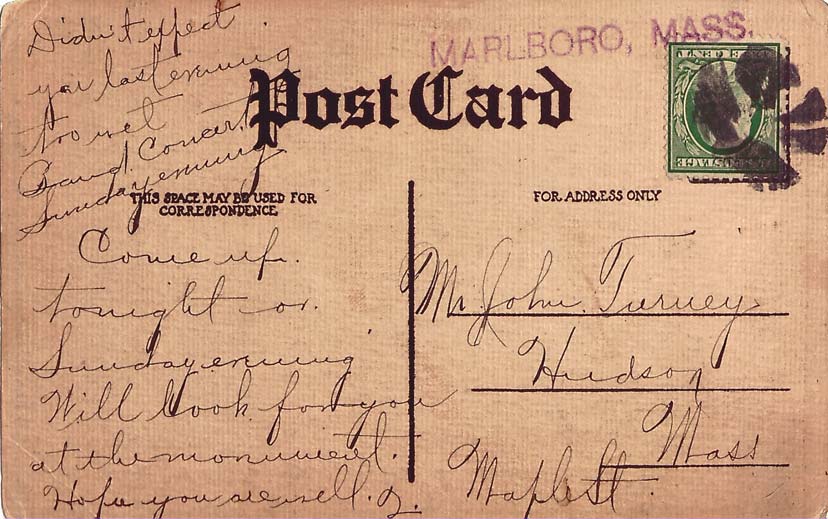 Didn't expect
you last evening
too wet
Band Concert
Sunday evening
MARLBORO, MASS.
Post Card
THIS SPACE MAY BE USED FOR
CORRESPONDENCE
FOR ADDRESS ONLY
Come up
tonight or
Sunday evening
Will look for you
at the monument.
Hope you are well.
Mr. John Turney
Hudson
Mass
Maple St.